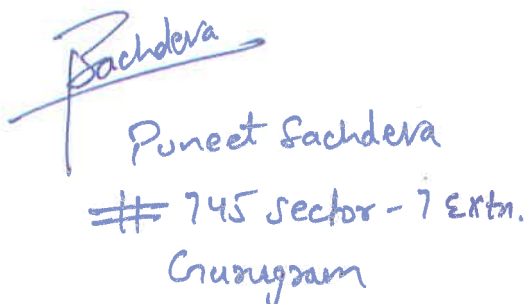 PSachdeva
Puneet Sachdeva
# 745 sector - 7 Extn.
Gurugram